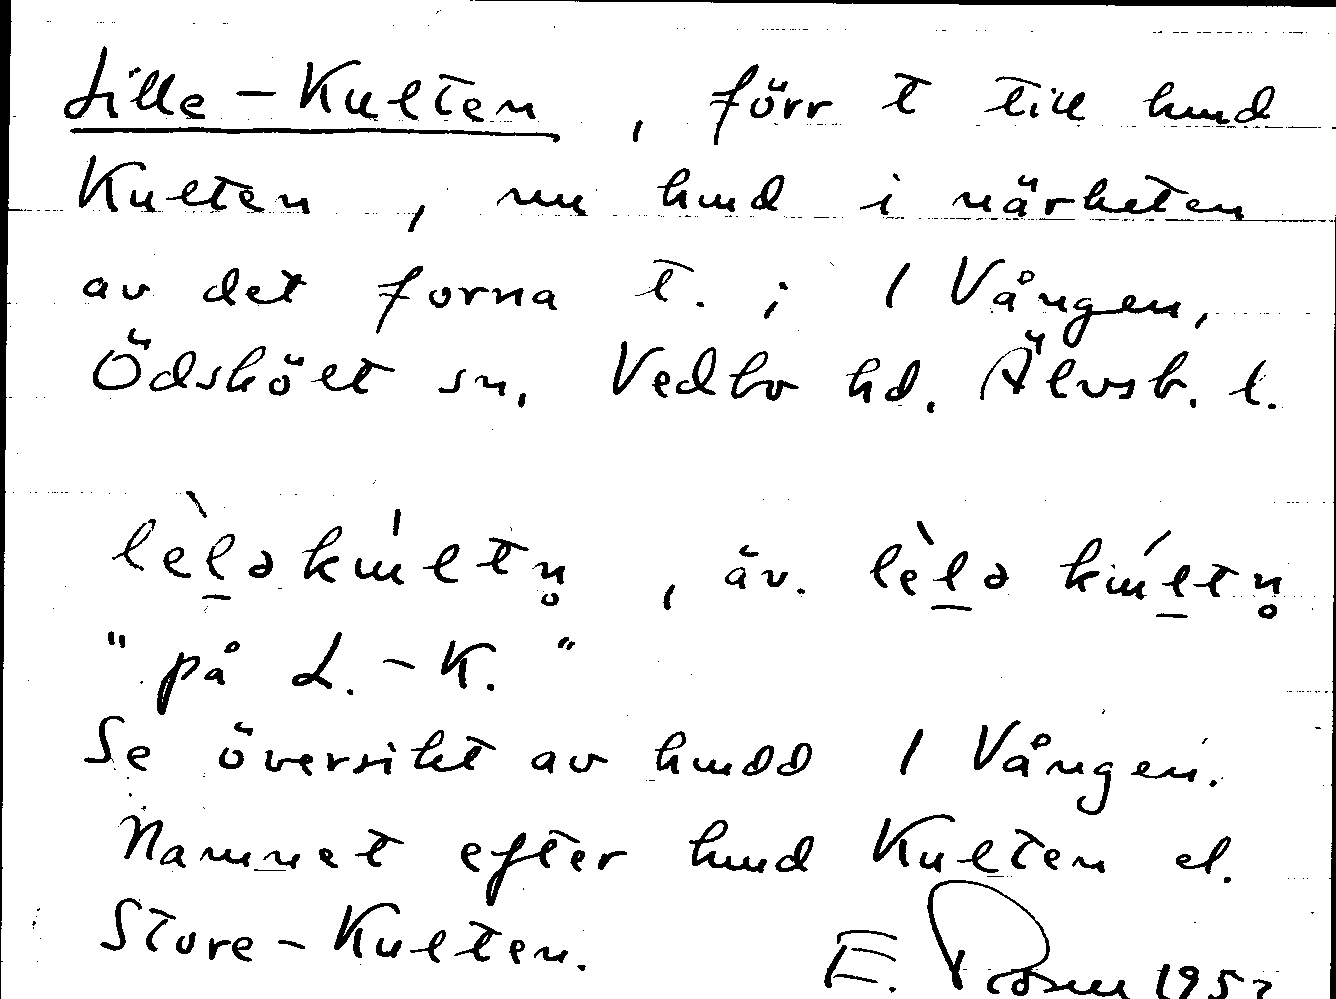 Lille-Kulten, förr t till hmd
Kulten, nu hmd i närheten
av det forna t. i 1 Vången,
Ödskölt sn, Vedbo hd. Älvsb. l.
lèlə kúltn̥, äv. lèlə kúltn̥
"på L.-K."
Se översikt av hmdd 1 Vången.
Namnet efter hmd Kulten el.
Store-Kulten.
E. 195